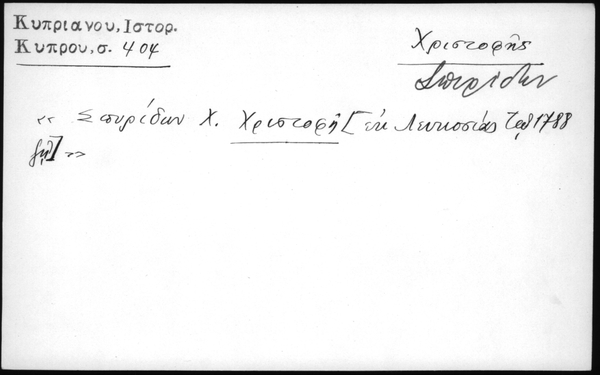 Κυπριανου, Ιστορ.
Κυπρου, σ. 404
Χριστοφῆς
Σπυρίδων
«  Σπυρίδων Χ. Χριστοφῆ [ ἐκ Λευκοσίας 1788
] »